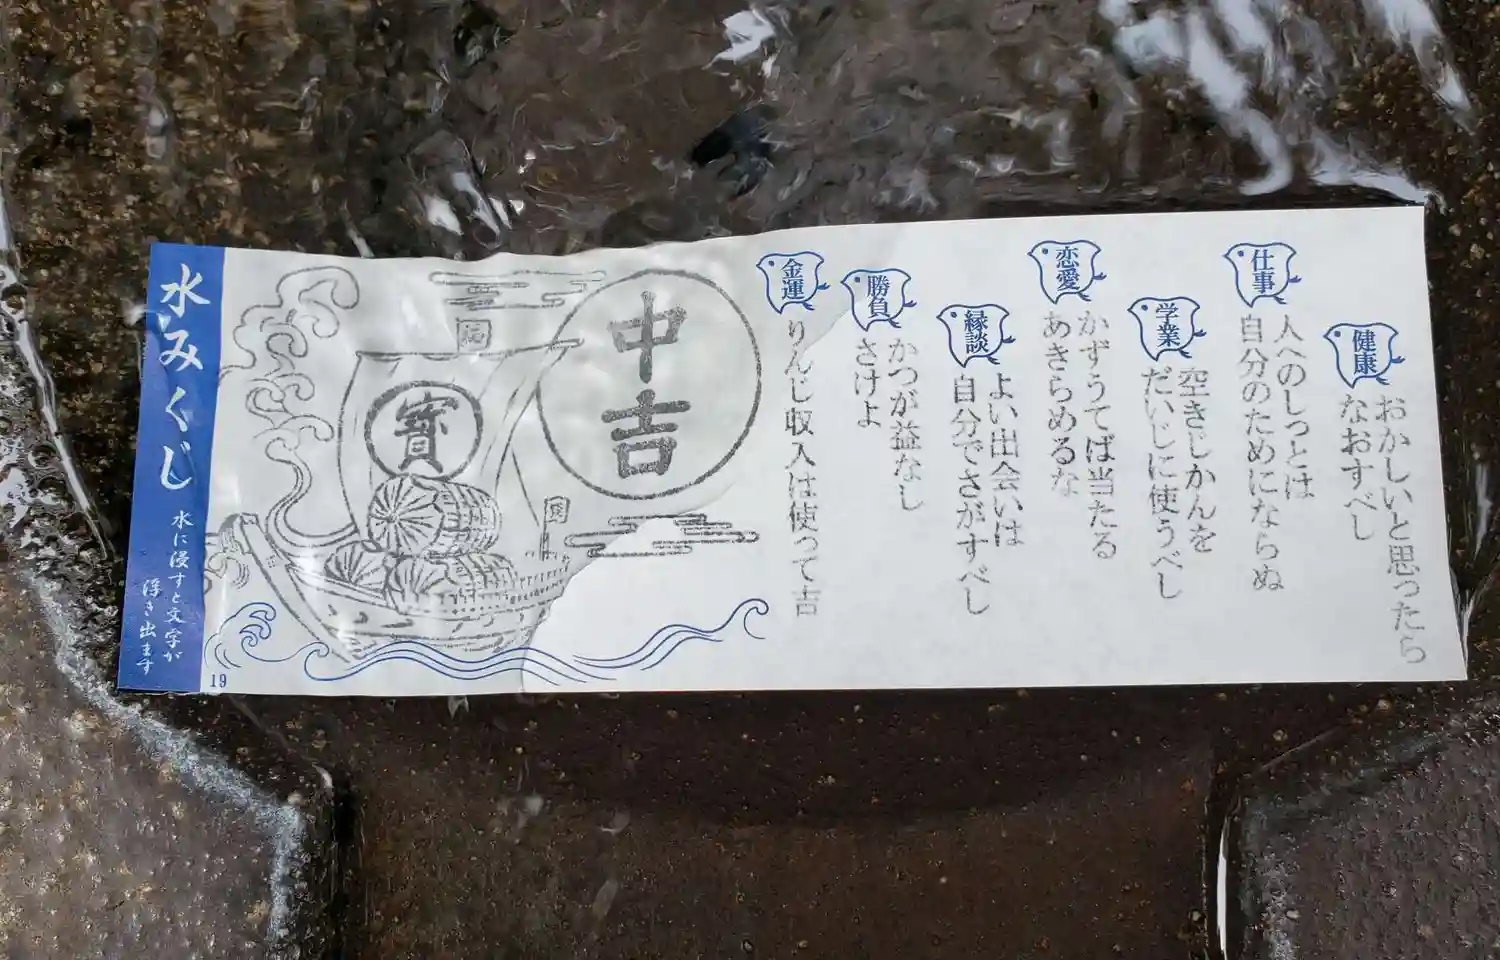 水みくじ
水に浸すと文字が
浮き出ます
19
中吉
寶
健康
おかしいと思ったら
なおすべし
仕事
人へのしっとは
自分のためにならぬ
学業
空きじかんを
だいじに使うべし
恋愛
かずうてば当たる
あきらめるな
縁談
よい出会いは
自分でさがすべし
勝負
かつが益なし
さけよ
金運
りんじ収入は使って吉